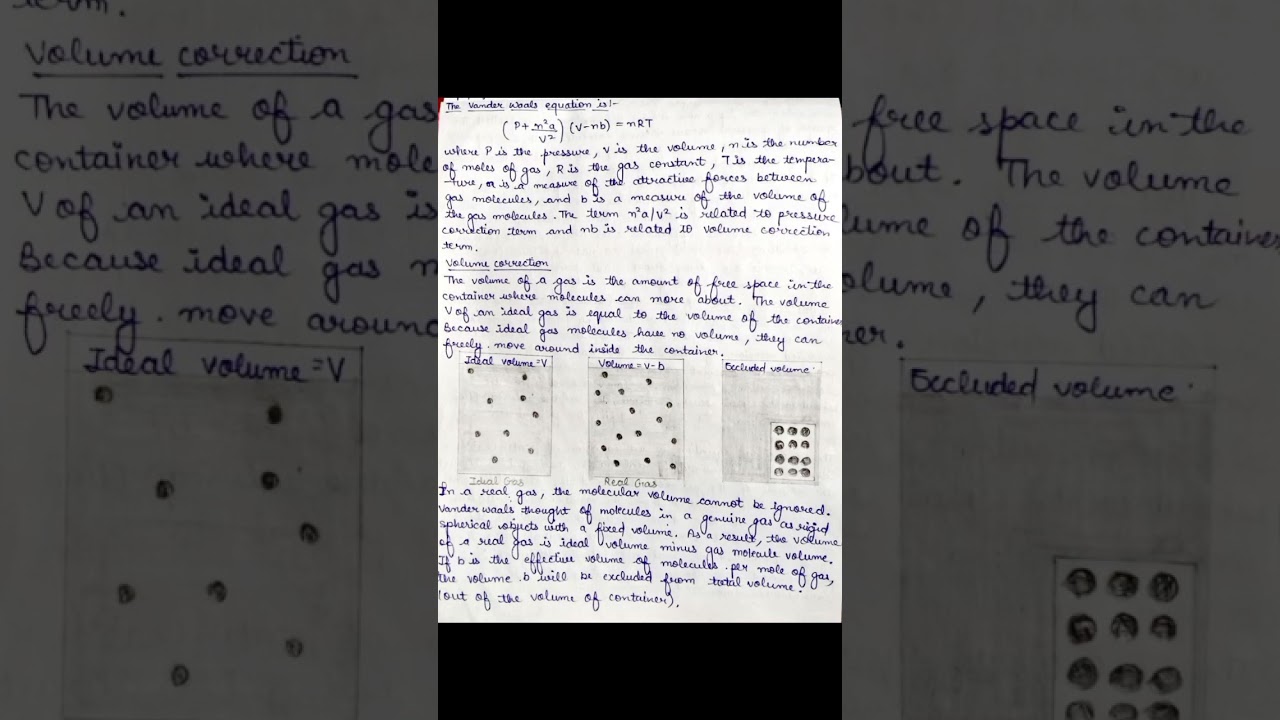 The Vander Waals equation is:-
(P+n²a/v²) (v-nb) = nRT
where P is the pressure, v is the volume, n is the number
of moles of gas, R is the gas constant, T is the tempera-
-ture, a is a measure of the attractive forces between
gas molecules, and b is a measure of the volume of
the gas molecules. The term n²a/v² is related to pressure
correction term and nb is related to volume correction
term.
Volume correction
The volume of a gas is the amount of free space in the
container where molecules can more about. The volume
V of an ideal gas is equal to the volume of the container
Because ideal gas molecules have no volume, they can
freely move around inside the container.
Ideal volume = V
Volume = V-b
Excluded volume.
Ideal Gas
Real Gas
In a real gas, the molecular volume cannot be ignored.
Vander waals thought of molecules in a genuine gas as rigid
spherical objects with a fixed volume. As a result, the volume
of a real gas is ideal volume minus gas molecule volume.
If b is the effective volume of molecules per mole of gas,
the volume b will be excluded from total volume.
(out of the volume of container).